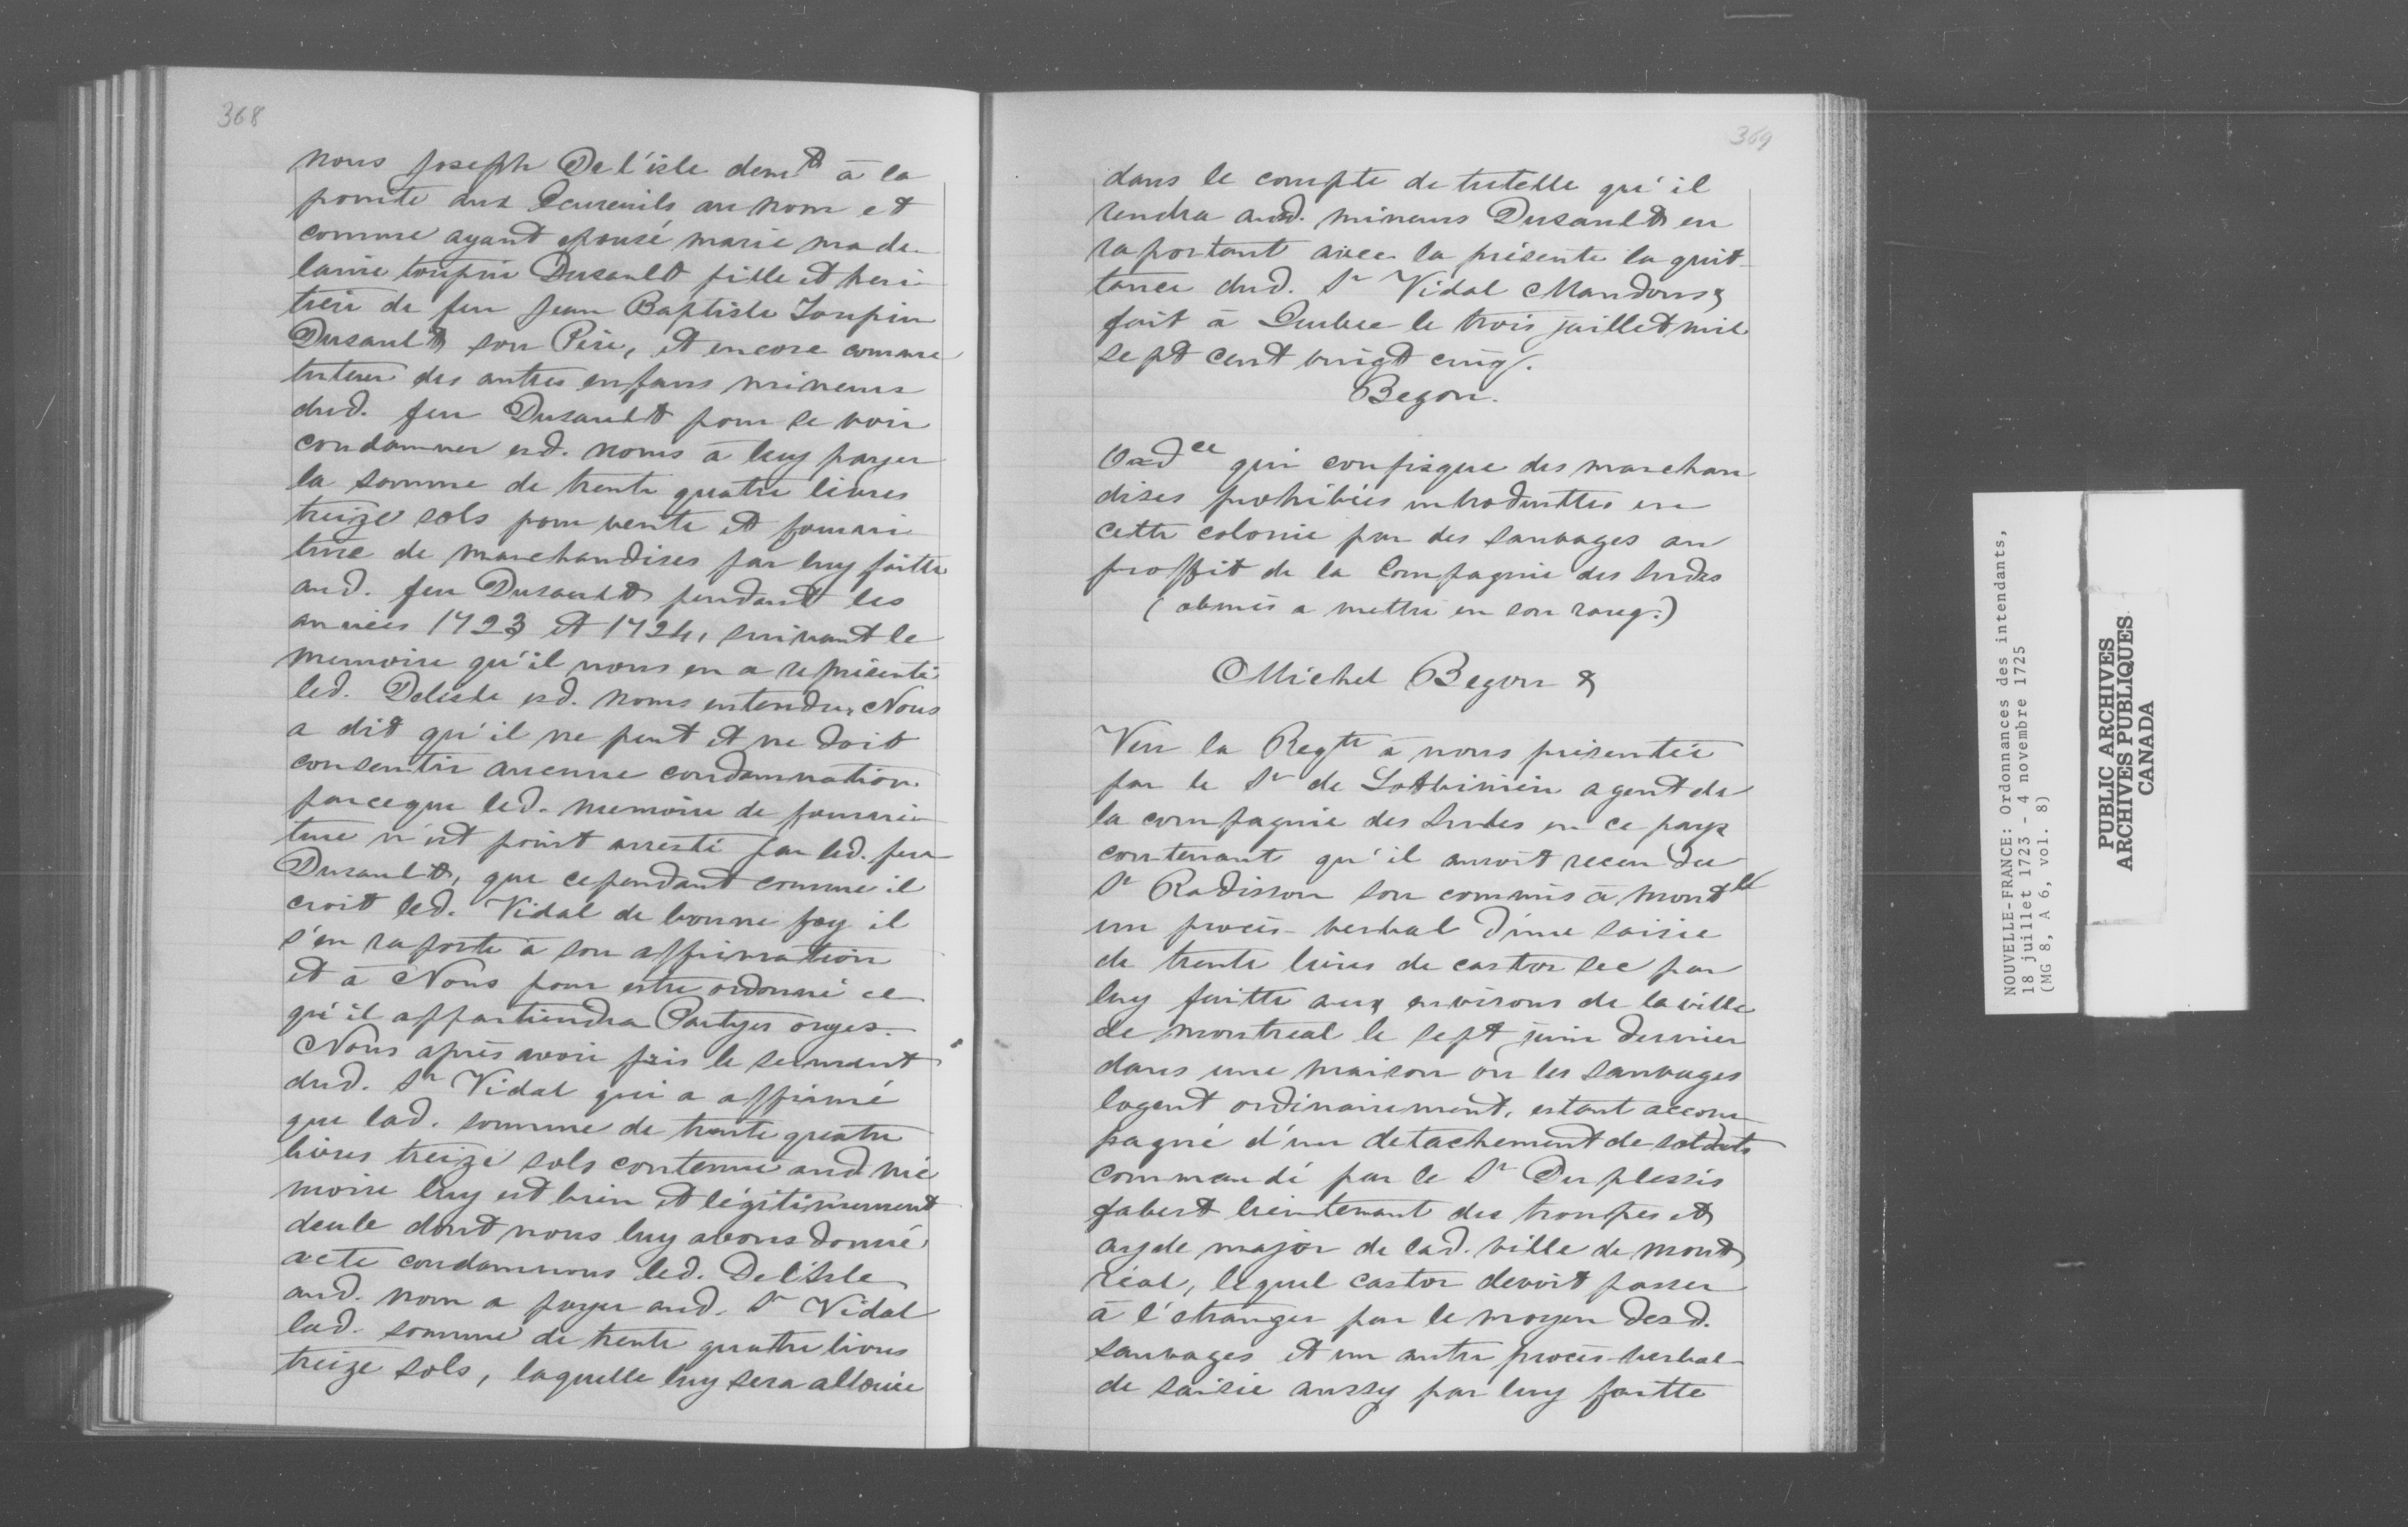 368
nous Joseph De l'isle demt à la
pointe aux Ecureuils au nom et
comme ayant epousé marie made-
laine toupin Dusault fille et heri-
tiere de feu Jean Baptiste Toupin
Dusault son Pere, et encore comme
tuteur des autres enfans mineurs
dud. feu Dusault pour se voir
condamner esd. noms à luy payer
la somme de trente quatre livres
treize sols pour vente et fourni-
ture de marchandises par luy faitte
aud. feu Dusault pendant les
années 1723 et 1724, suivant le
memoire qu'il nous en a representé
led. Delisle esd. noms entendu, Nous
a dit qu'il ne peut et ne doit
consentir aucune condamnation
parceque led. memoire de fourni-
ture n'est point arresté par led. feu
Dusault, que cependant comme il
croit led. Vidal de bonne foy il
s'en raporte à son affirmation
et à Nous pour estre ordonné ce
qu'il appartiendra Partyes ouyes.
Nous après avoir pris le serment
dud. Sr Vidal qui a affirmé
que lad. somme de trente quatre
livres treize sols contenue aud. mé
moire luy est bien et légitimement
deube dont nous luy avons donné
acte condamnons led. De l'Isle
aud. nom a payer aud. Sr Vidal
lad. somme de trente quatre livres
treize sols, laquelle luy sera allouée
369
dans le compte de tutelle qu'il
rendra aud. mineurs Dusault en
raportant avec la présente la quit-
tance dud. Sr Vidal Mandons &
fait à Quebec le trois juillet mil
sept cent vingt cinq.
Begon.
Ordce qui confisque des marchan
dises prohibées introduittes en
cette colonie par des sauvages au
proffit de la Compagnie des Indes
(obmis a mettre en son rang.)
Michel Begon &
Veu la Reqte à nous présentée
par le Sr de Lotbiniere agent de
la compagnie des Indes en ce pays
contenant qu'il auroit receu du
Sr Radisson son commis à montll
un procès-verbal d'une saisie
de trente livres de castor sec par
luy faitte aux environs de la ville
de montreal le sept juin dernier
dans une maison où les sauvages
logent ordinairement, estant accom
pagné d'un detachement de soldats
commandé par le Sr Du plessis
fabert lieutenant des troupes et
ayde major de lad. ville de mont
réal, lequel castor devoit passer
à l'étranger par le moyen desd.
sauvages et un autre procès-verbal
de saisie aussy par luy faitte
NOUVELLE-FRANCE: Ordonnances des intendants,
18 juillet 1723 - 4 novembre 1725
(MG 8, A 6, vol. 8)
PUBLIC ARCHIVES
ARCHIVES PUBLIQUES
CANADA